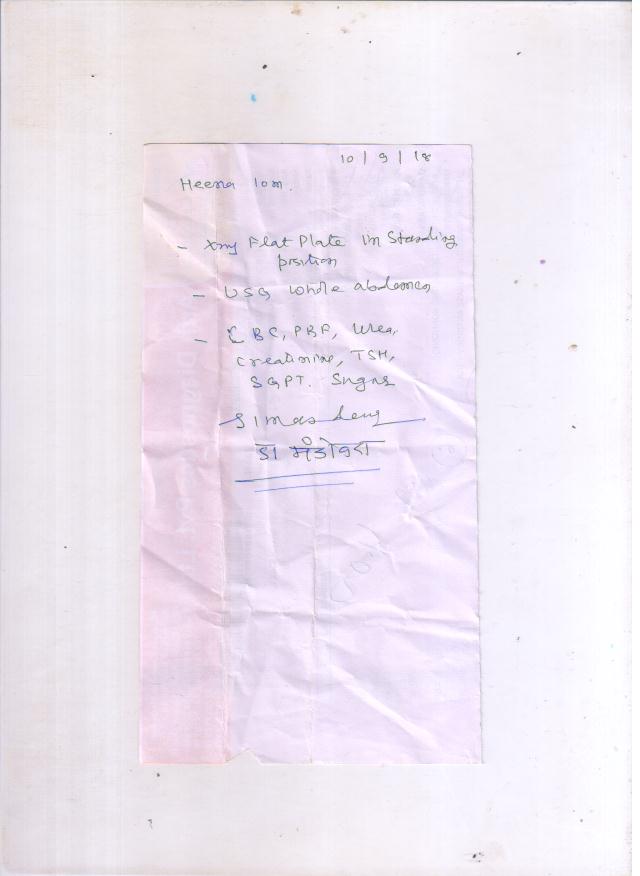 10/9/18
Heena 10m.
- Xray Flat Plate in Standing
position
- USG whole abdomen
- CBC, PBF, Urea,
Creatinine, TSH,
SGPT. Sugar
डा